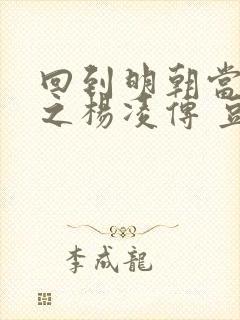 回到明朝當
之楊凌傳
李成龍